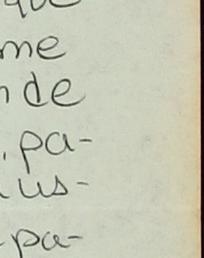 que
me
nde
pa-
us-
pa-